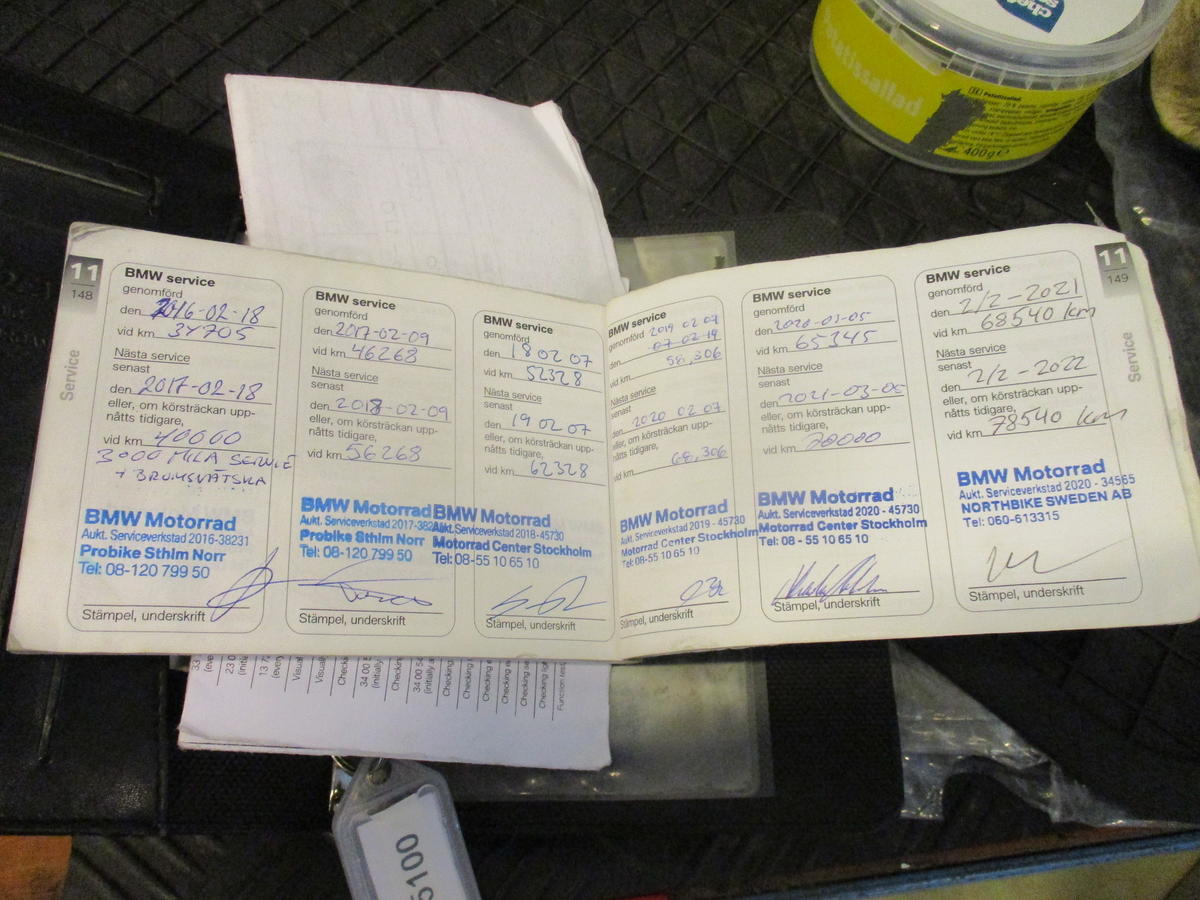 Potatissallad
Potatissallad
400g e
11
148
Service
BMW service
genomförd
den 2016-02-18
vid km 34705
Nästa service
senast
den 2017-02-18
eller, om körsträckan upp-
nåtts tidigare,
vid km 40000
3000 MILA SERVICE
+ BROMSVÄTSKA
BMW Motorrad
Aukt. Serviceverkstad 2016-38231
Probike Sthlm Norr
Tel: 08-120 799 50
Stämpel, underskrift
BMW service
genomförd
den 2017-02-09
vid km 46268
Nästa service
senast
den 2018-02-09
eller, om körsträckan upp-
nåtts tidigare,
vid km 56268
BMW Motorrad
Aukt. Serviceverkstad 2017-382
Probike Sthlm Norr
Tel: 08-120 799 50
Stämpel, underskrift
BMW service
genomförd
den 18 02 07
vid km 52328
Nästa service
senast
den 19 02 07
eller, om körsträckan upp-
nåtts tidigare,
vid km 62328
BMW Motorrad
Aukt. Serviceverkstad 2018-45730
Motorrad Center Stockholm
Tel: 08-55 10 65 10
Stämpel, underskrift
BMW service
genomförd 2019 02 07
den 07-02-19
vid km 58,306
Nästa service
senast
den 2020 02 07
eller, om körsträckan upp-
nåtts tidigare,
vid km 68,306
BMW Motorrad
Aukt. Serviceverkstad 2019 - 45730
Motorrad Center Stockholm
Tel: 08-55 10 65 10
Stämpel, underskrift
BMW service
genomförd
den 2020-03-05
vid km 65345
Nästa service
senast
den 2021-03-05
eller, om körsträckan upp-
nåtts tidigare,
vid km 70000
BMW Motorrad
Aukt. Serviceverkstad 2020 - 45730
Motorrad Center Stockholm
Tel: 08 - 55 10 65 10
Stämpel, underskrift
11
149
Service
BMW service
genomförd
den 2/2-2021
vid km 68540 km
Nästa service
senast
den 2/2-2022
eller, om körsträckan upp-
nåtts tidigare,
vid km 78540 km
BMW Motorrad
Aukt. Serviceverkstad 2020 - 34565
NORTHBIKE SWEDEN AB
Tel: 060-613315
Stämpel, underskrift
5100